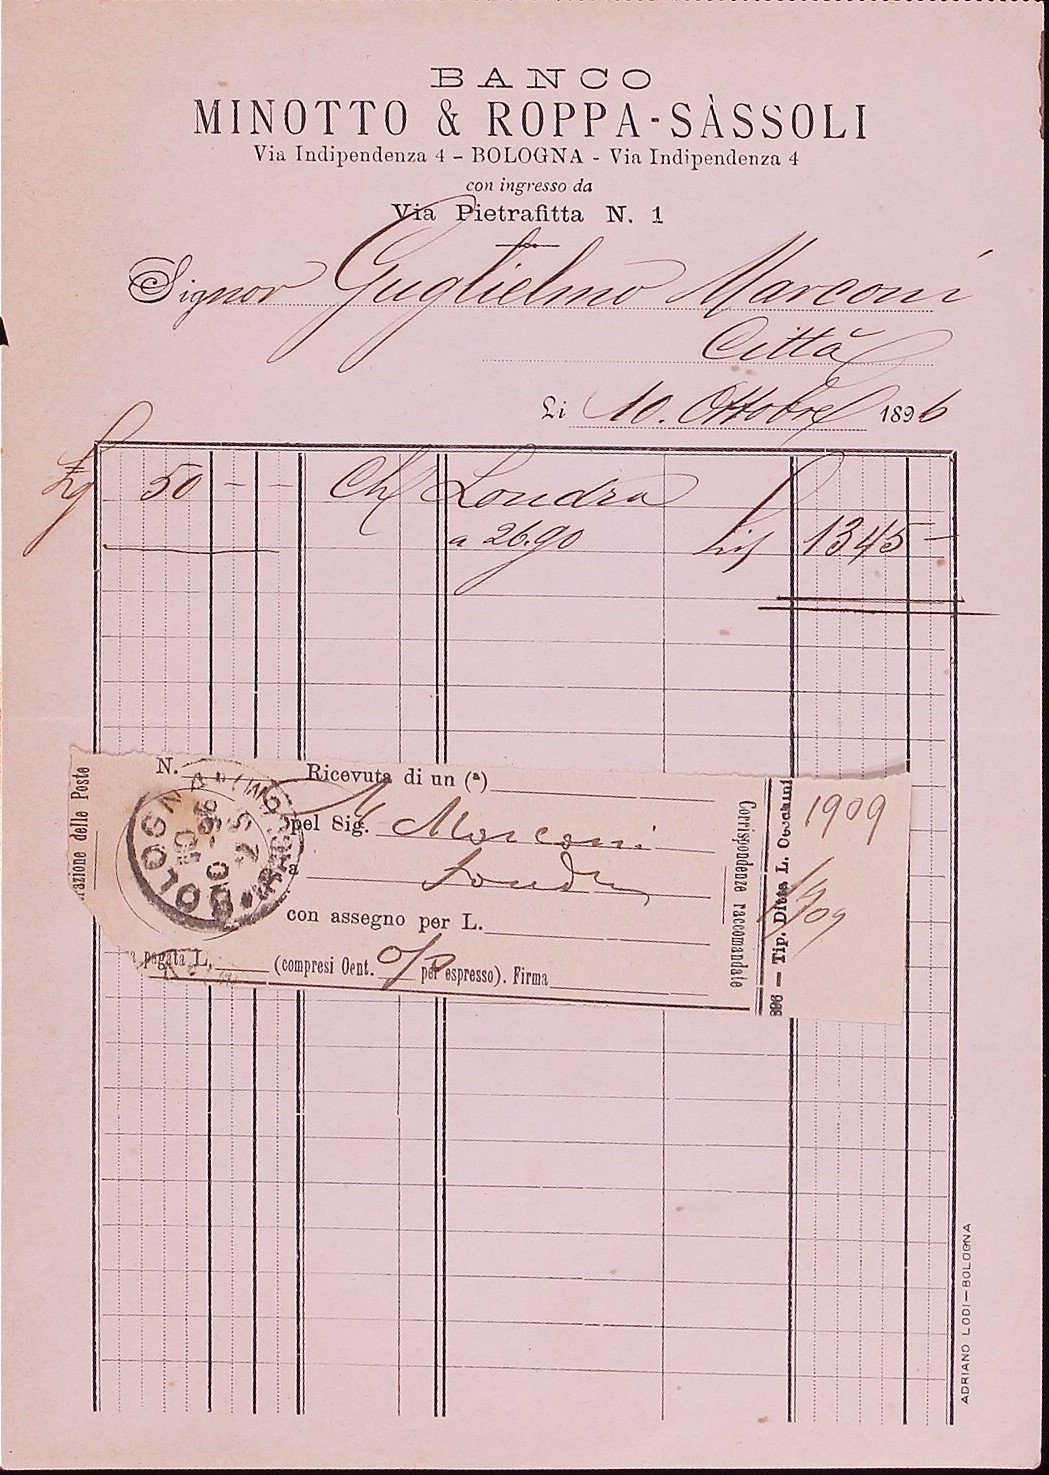 BANCO
MINOTTO & ROPPA-SÀSSOLI
Via Indipendenza 4 - BOLOGNA - Via Indipendenza 4
con ingresso da
Via Pietrafitta N. 1
Signor Guglielmo Marconi
Città
Li 10. Ottobre 1896
50 - - Ch/ Londra
a 26.90 Lit 1345 -
N. Ricevuta di un (a)
pel Sig. Marconi
a Londra
con assegno per L.
pagata L. (compresi Cent. per espresso). Firma
razione delle Poste
BOLOGNA
10 96
Corrispondenze raccomandate
896 - Tip. Ditta L. Cecchini
1909
1909
ADRIANO LODI - BOLOGNA